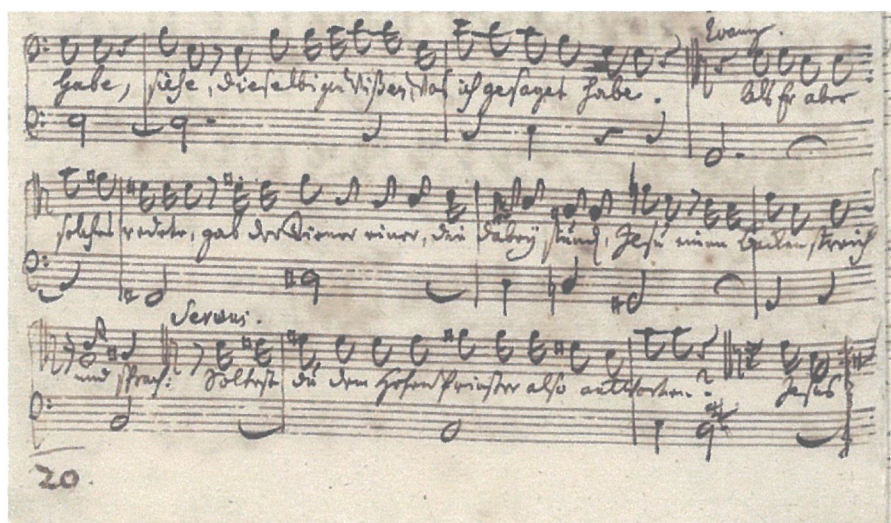 Evang.
habe, siehe, dieselbigen wißen, was ich gesaget habe. Als Er aber
solches redete, gab der Diener einer, die dabey stund, Jesu einen Backenstreich
Servus.
und sprach: Soltest du dem HohenPriester also antworten? Jesus
20.